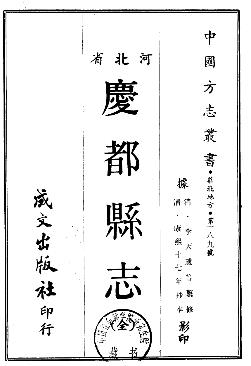 中國方志叢書·華北地方·第一八九號
據清·李天璣等纂修
清·康熙十七年抄本影印
河北省
慶都縣志
成文出版社印行
全
藏书